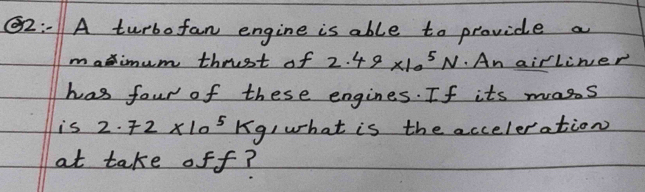 Q2:- A turbofan engine is able to provide a
maximum thrust of 2.49 x10⁵ N. An airliner
has four of these engines. If its mass
is 2.72 x10⁵ Kg, what is the acceleration
at take off?